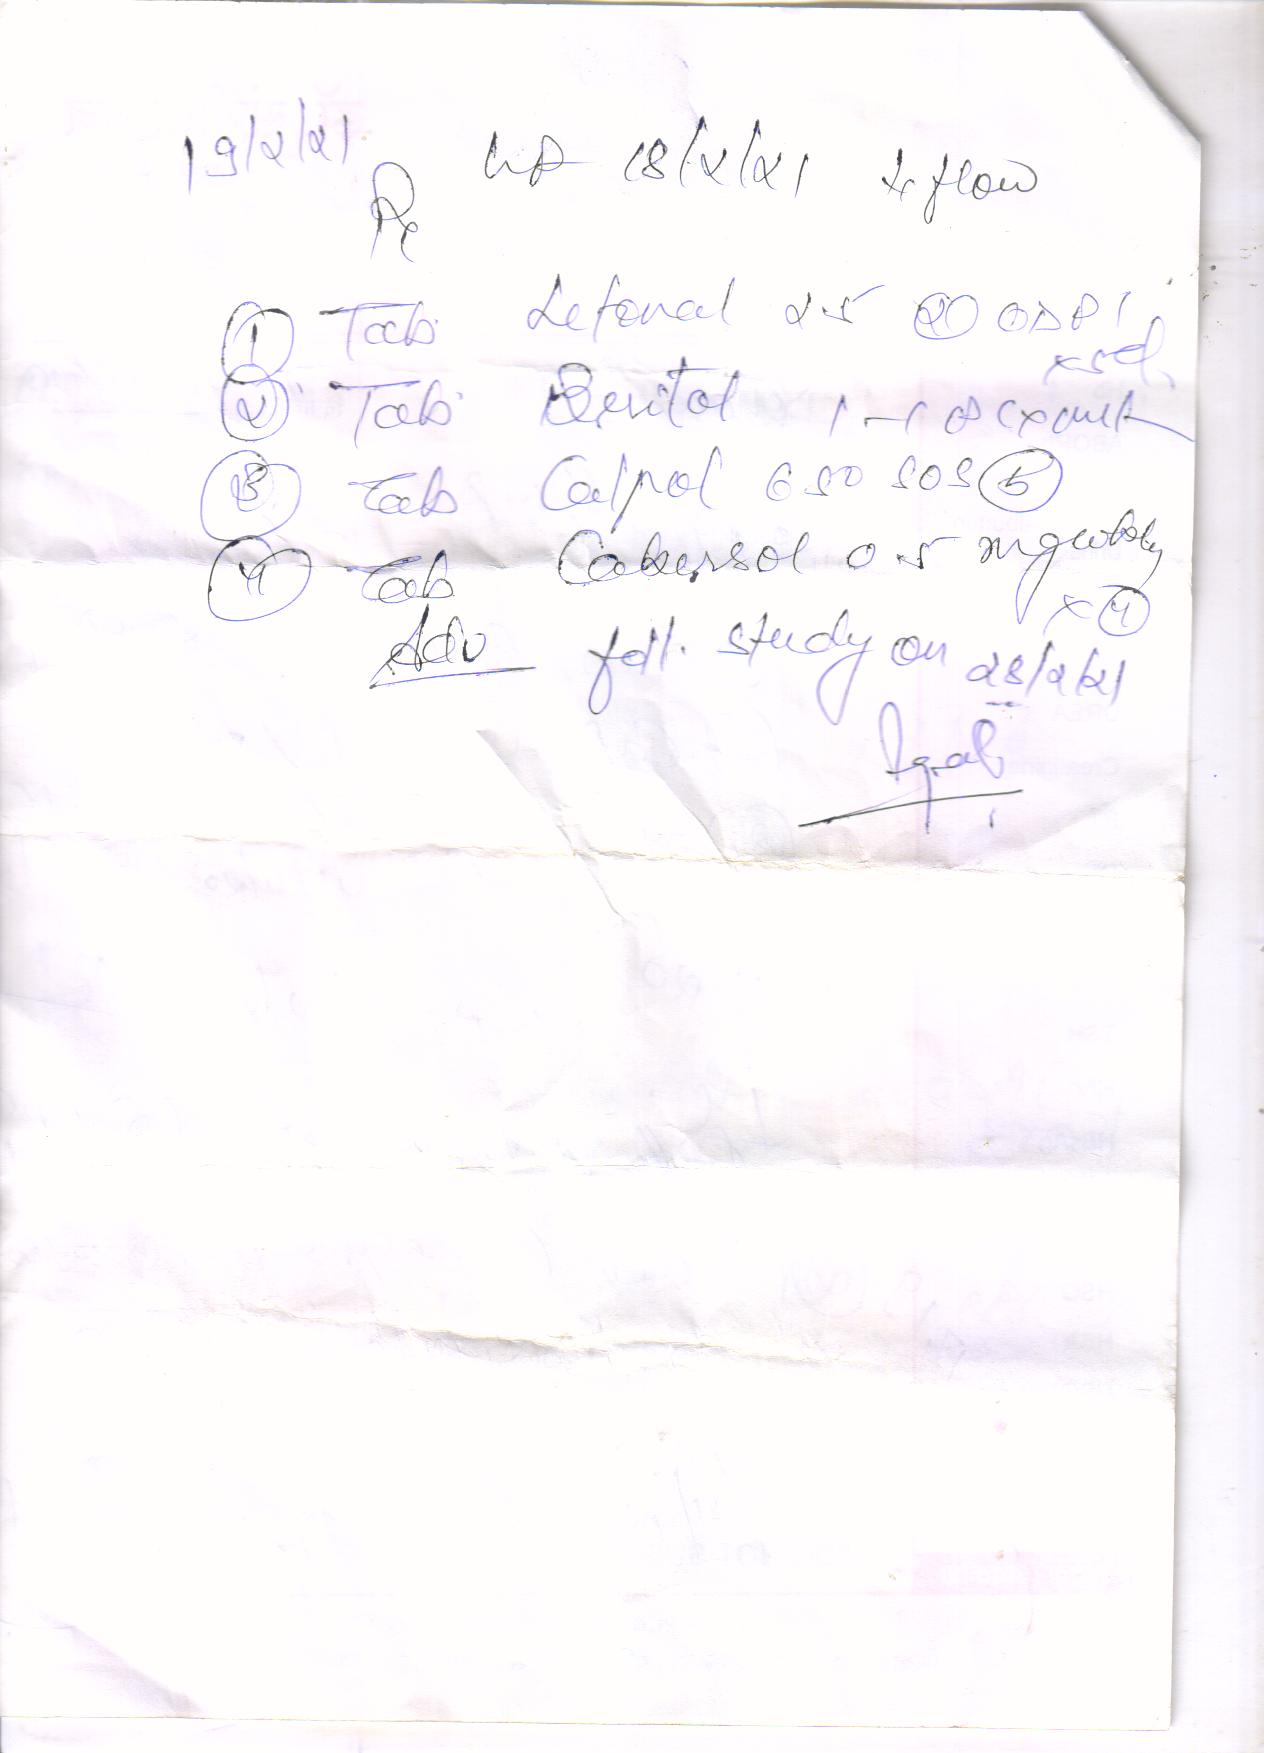 19/2/21
Rx LMP 18/2/21 ↓ flow
① Tab Letoval 2.5 ② OD PC
x 5 d
② Tab Benitol 1-1 PC x
③ Tab Calpol 650 SOS ⑤
④ Tab Cabersol 0.5 mg weekly
x ④
Adv foll. study on 28/2/21